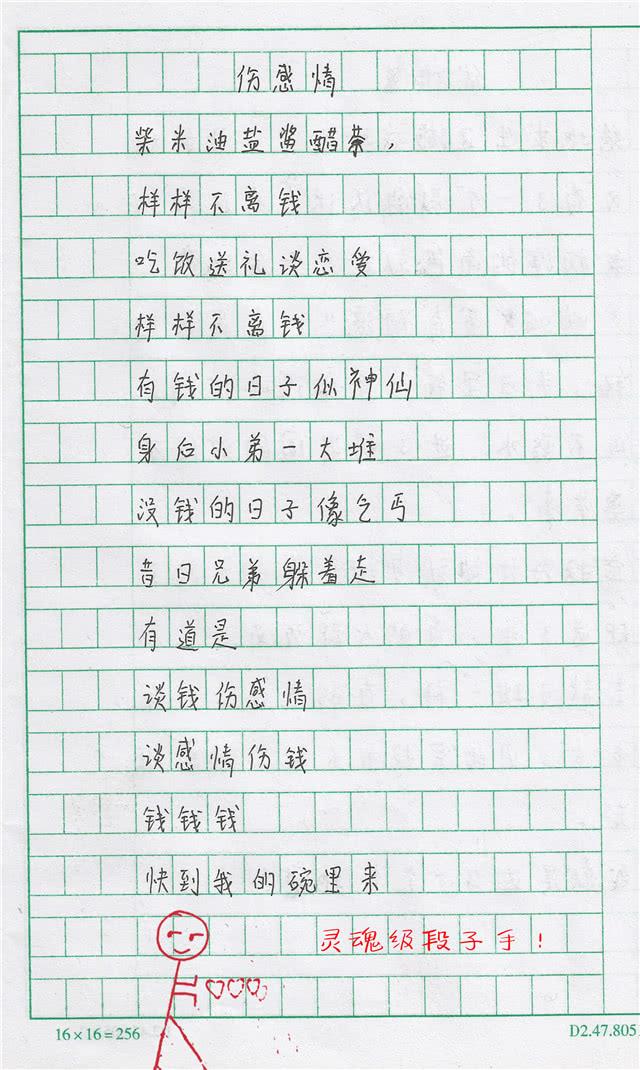 伤感情
柴米油盐酱醋茶，
样样不离钱
吃饭送礼谈恋爱
样样不离钱
有钱的日子似神仙
身后小弟一大堆
没钱的日子像乞丐
昔日兄弟躲着走
有道是
谈钱伤感情
谈感情伤钱
钱钱钱
快到我的碗里来
灵魂级段子手！
16×16=256
D2.47.805